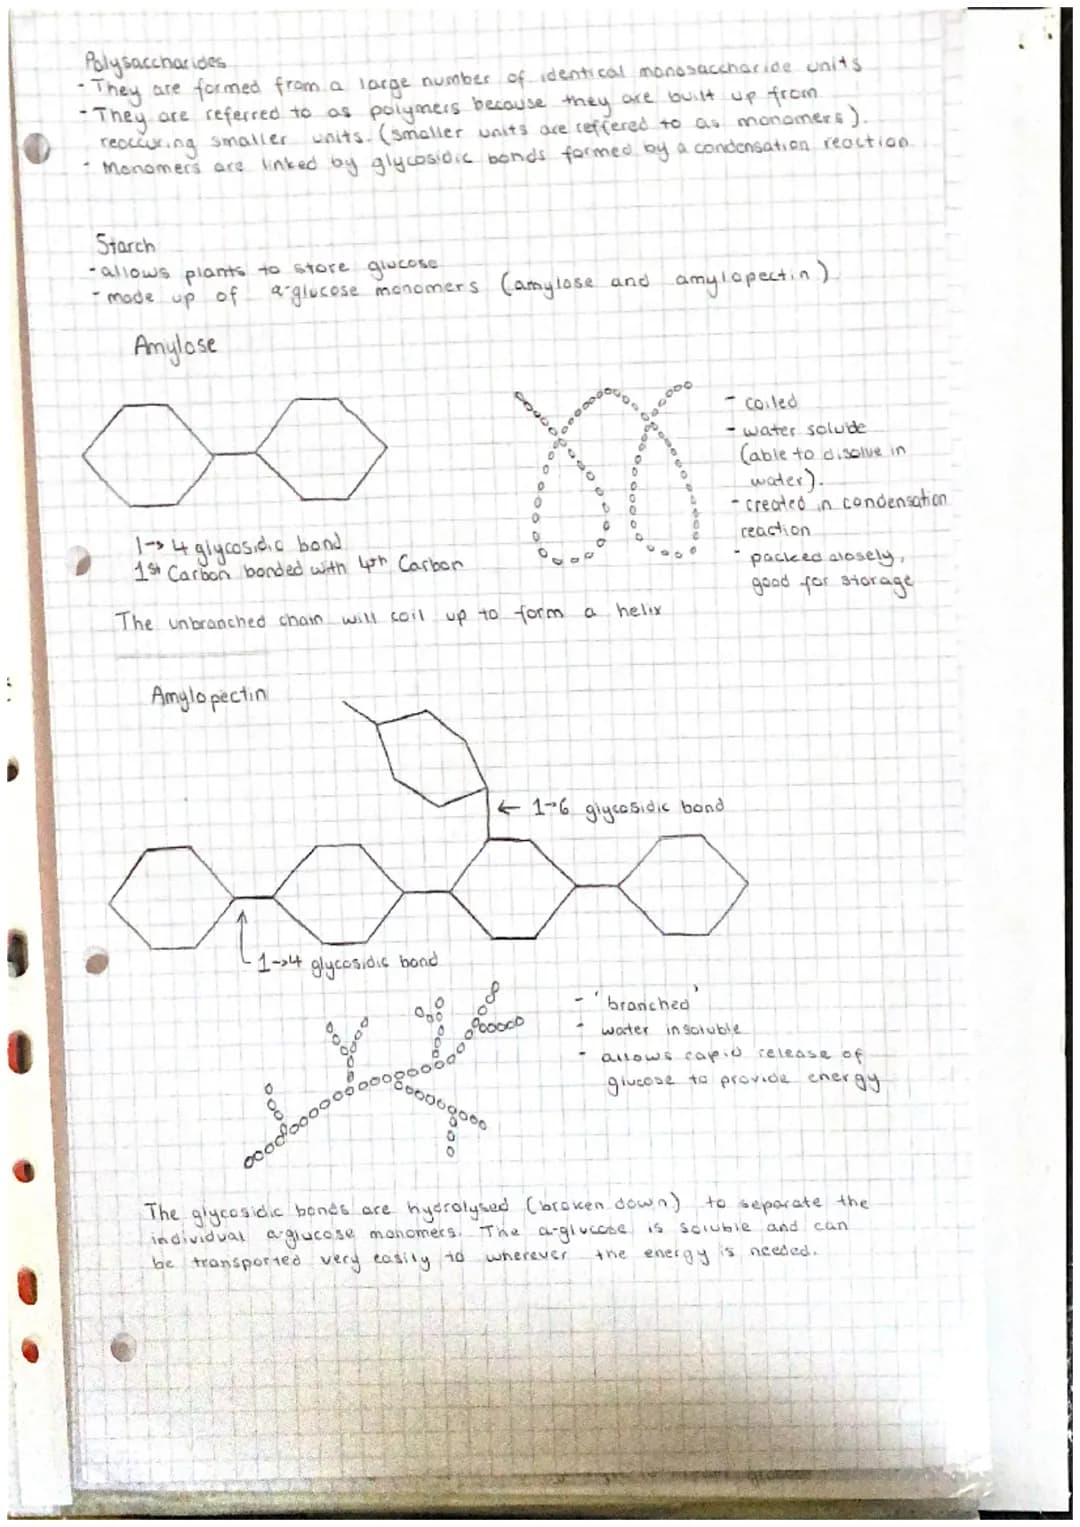 Polysaccharides
- They are formed from a large number of identical monosaccharide units
- They are referred to as polymers because they are built up from
reoccuring smaller units. (smaller units are reffered to as monomers).
- Monomers are linked by glycosidic bonds formed by a condensation reaction.
Starch
- allows plants to store glucose
- made up of α-glucose monomers (amylose and amylopectin)
Amylose
- coiled
- water soluble
(able to disolve in
water).
- created in condensation
reaction
- packed closely,
good for storage
1→4 glycosidic bond
1st Carbon bonded with 4th Carbon
The unbranched chain will coil up to form a helix
Amylopectin
← 1→6 glycosidic bond
1→4 glycosidic bond
- 'branched'
- water insoluble
- allows rapid release of
glucose to provide energy
The glycosidic bonds are hydrolysed (broken down) to separate the
individual α-glucose monomers. The α-glucose is soluble and can
be transported very easily to wherever the energy is needed.